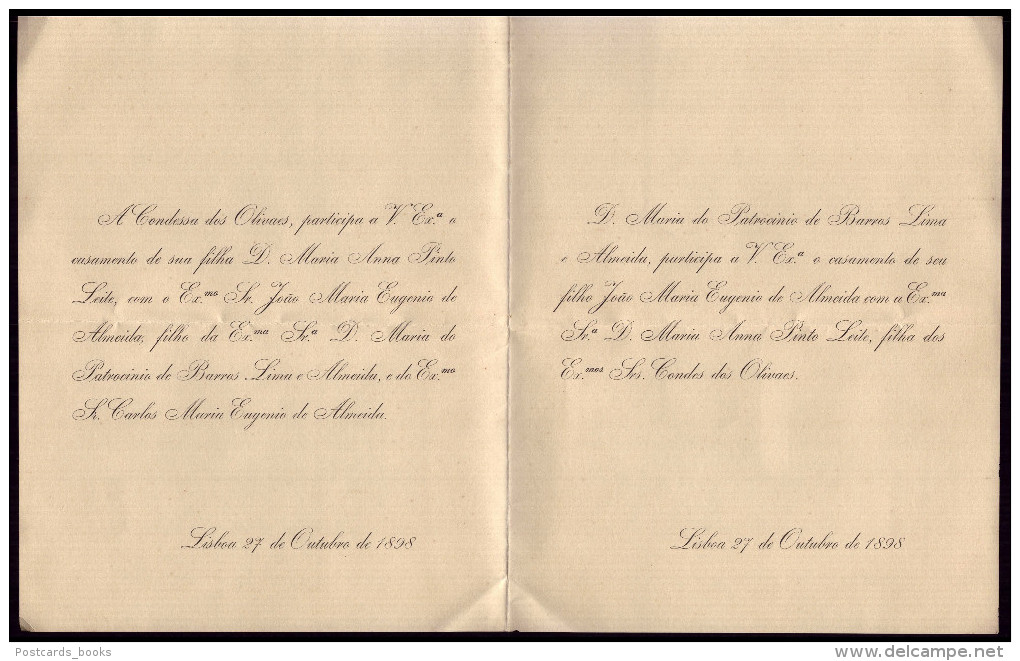 A Condessa dos Olivaes, participa a V. Ex.ª o
casamento de sua filha D. Maria Anna Pinto
Leite, com o Ex.mo Sr. João Maria Eugenio de
Almeida, filho da Ex.ma Sr.ª D. Maria do
Patrocinio de Barros Lima e Almeida, e do Ex.mo
Sr. Carlos Maria Eugenio de Almeida.
Lisboa 27 de Outubro de 1898
D. Maria do Patrocinio de Barros Lima
e Almeida, participa a V. Ex.ª o casamento de seu
filho João Maria Eugenio de Almeida com a Ex.ma
Sr.ª D. Maria Anna Pinto Leite, filha dos
Ex.mos Srs. Condes dos Olivaes.
Lisboa 27 de Outubro de 1898
Postcards_books
delcampe.net